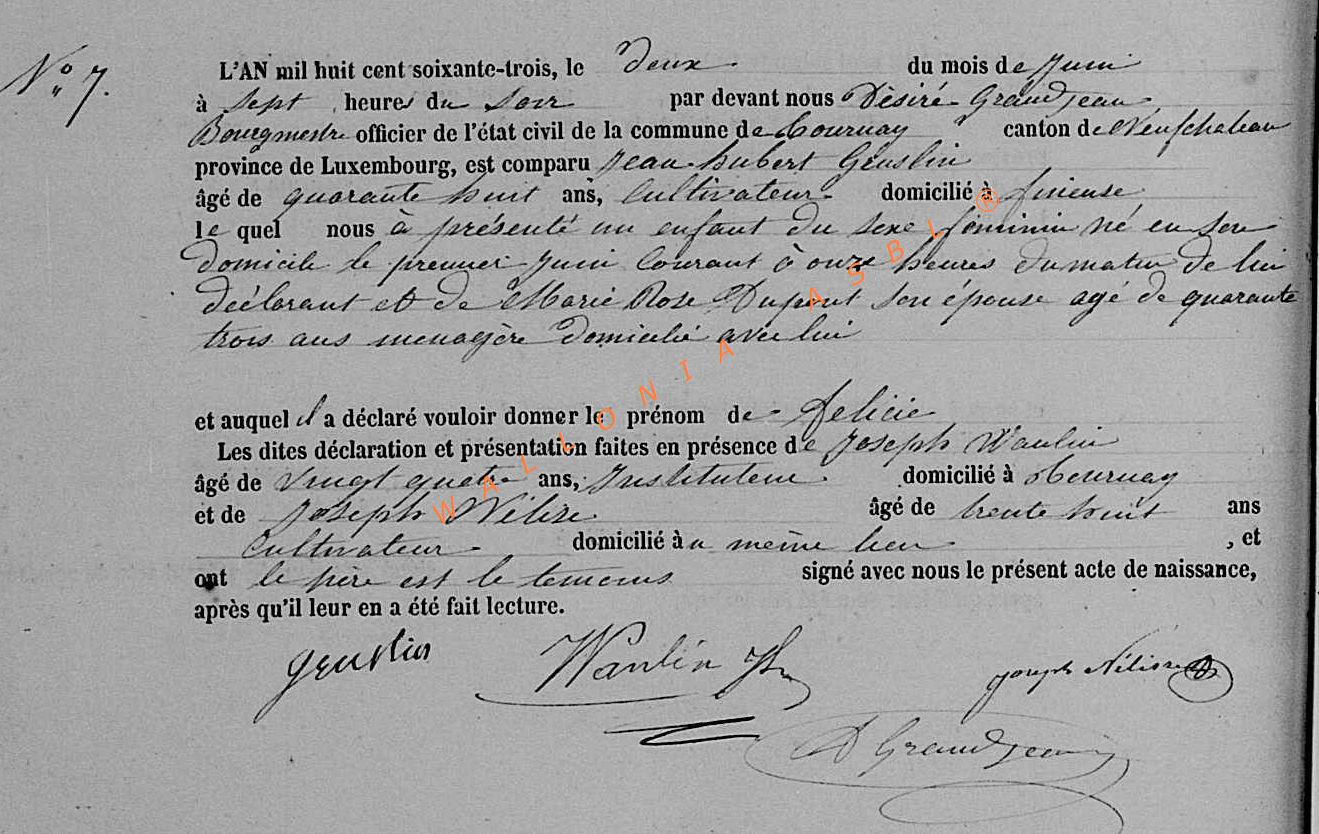 N° 7.
L'AN mil huit cent soixante-trois, le deux du mois de Juin
à sept heures du soir par devant nous Dèsiré Grandjean
Bourgmestre officier de l'état civil de la commune de Tournay canton de Neufchateau
province de Luxembourg, est comparu Jean hubert Geuslin
âgé de quarante huit ans, Cultivateur domicilié à fineuse
le quel nous à présenté un enfant du sexe féminin né en son
domicile le premier Juin Courant à onze heures du matin de lui
déclarant et de Marie Rose Dupont son épouse agé de quarante
trois ans menagère domicilié avec lui
et auquel il a déclaré vouloir donner le prénom de felicie
Les dites déclaration et présentation faites en présence de Joseph Wanlin
âgé de vingt quatre ans, Instituteur domicilié à Tournay
et de Joseph Nélisse âgé de trente huit ans
Cultivateur domicilié au même lieu , et
ont le père est le temoins signé avec nous le présent acte de naissance,
après qu'il leur en a été fait lecture.
geuslin Wanlin Jh joseph Nélisse
D Grandjean
WALLONIA ASBL ®